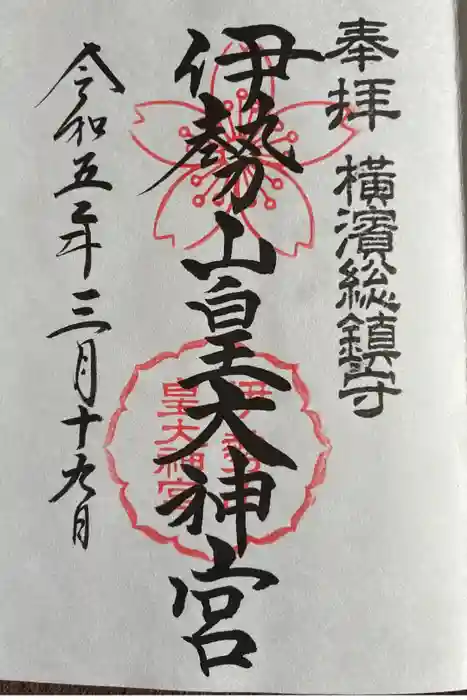 奉拝
横濱総鎮守
伊勢山皇大神宮
伊勢山
皇大神宮
令和五年三月十九日